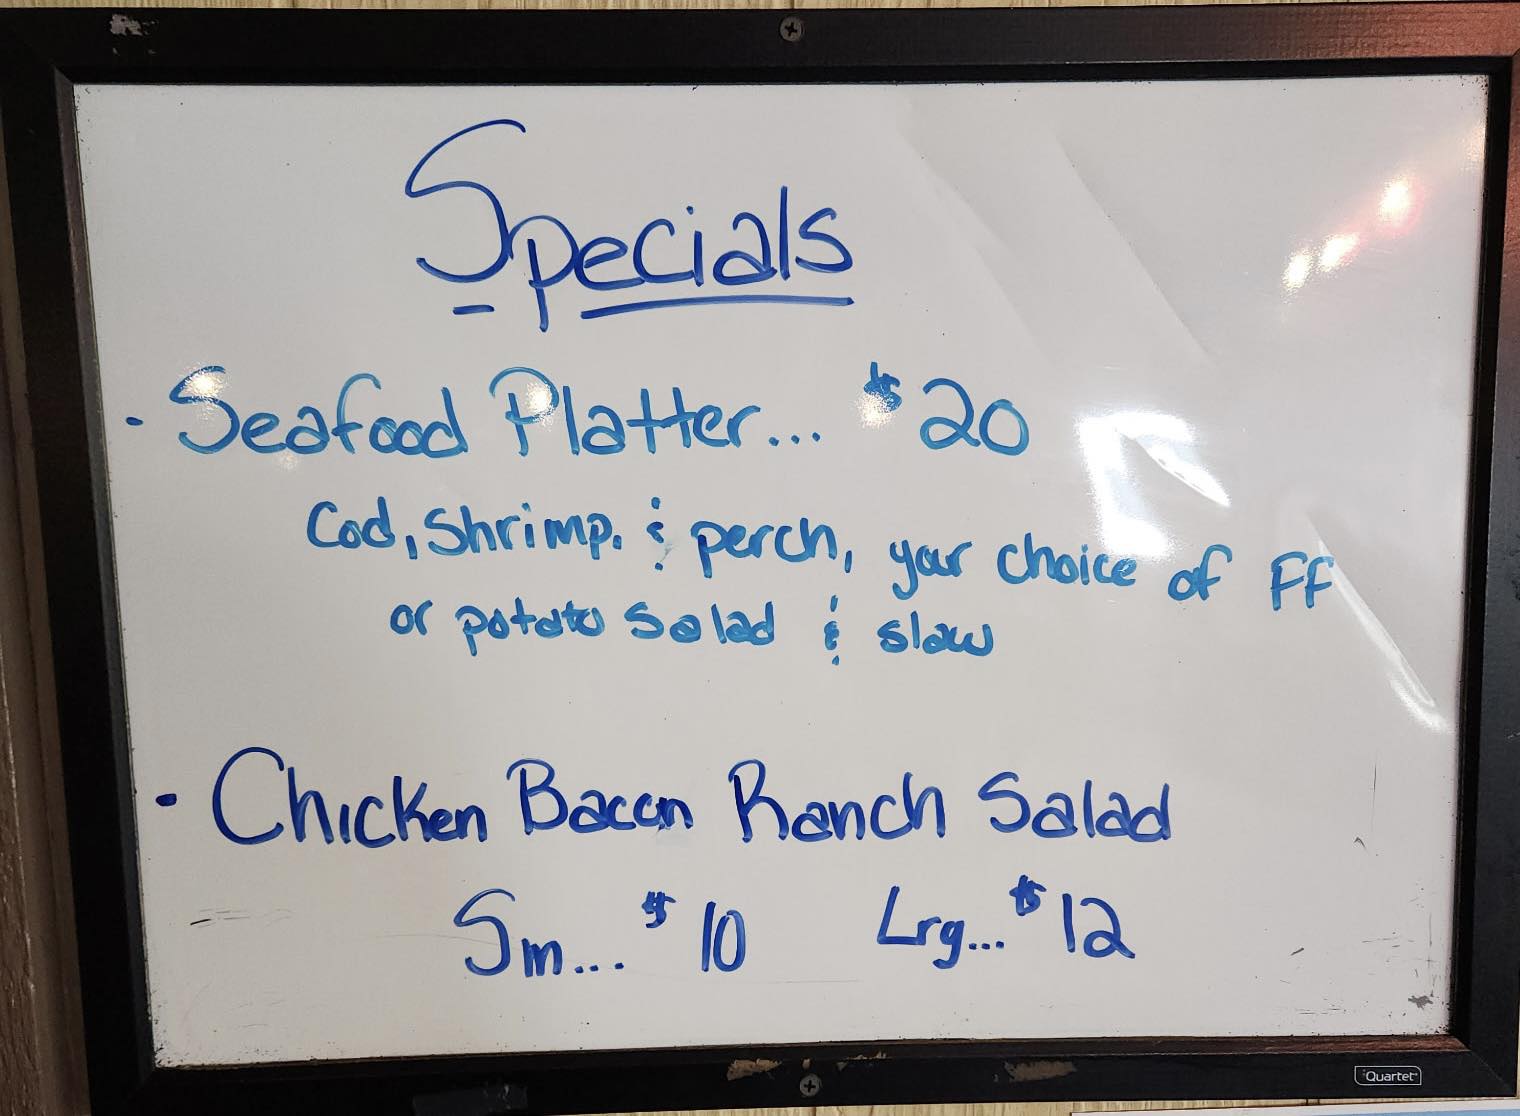 Specials
· Seafood Platter... $20
Cod, Shrimp, & perch, your choice of FF
or potato salad & slaw
· Chicken Bacon Ranch Salad
Sm... $10 Lrg... $12
Quartet